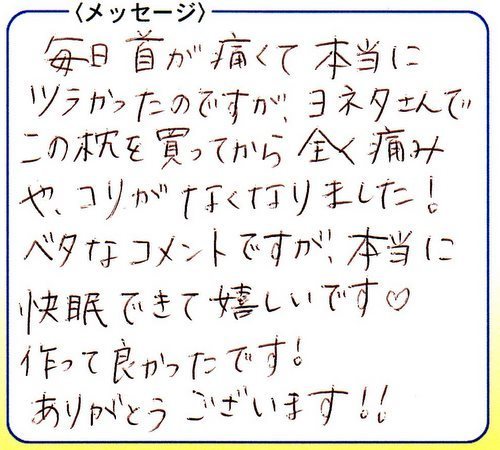 〈メッセージ〉
毎日 首が 痛くて 本当に
ツラかったのですが、ヨネタさんで
この枕を買ってから 全く痛み
や、コリがなくなりました!
ベタなコメントですが、本当に
快眠できて嬉しいです♡
作って良かったです!
ありがとう ございます!!